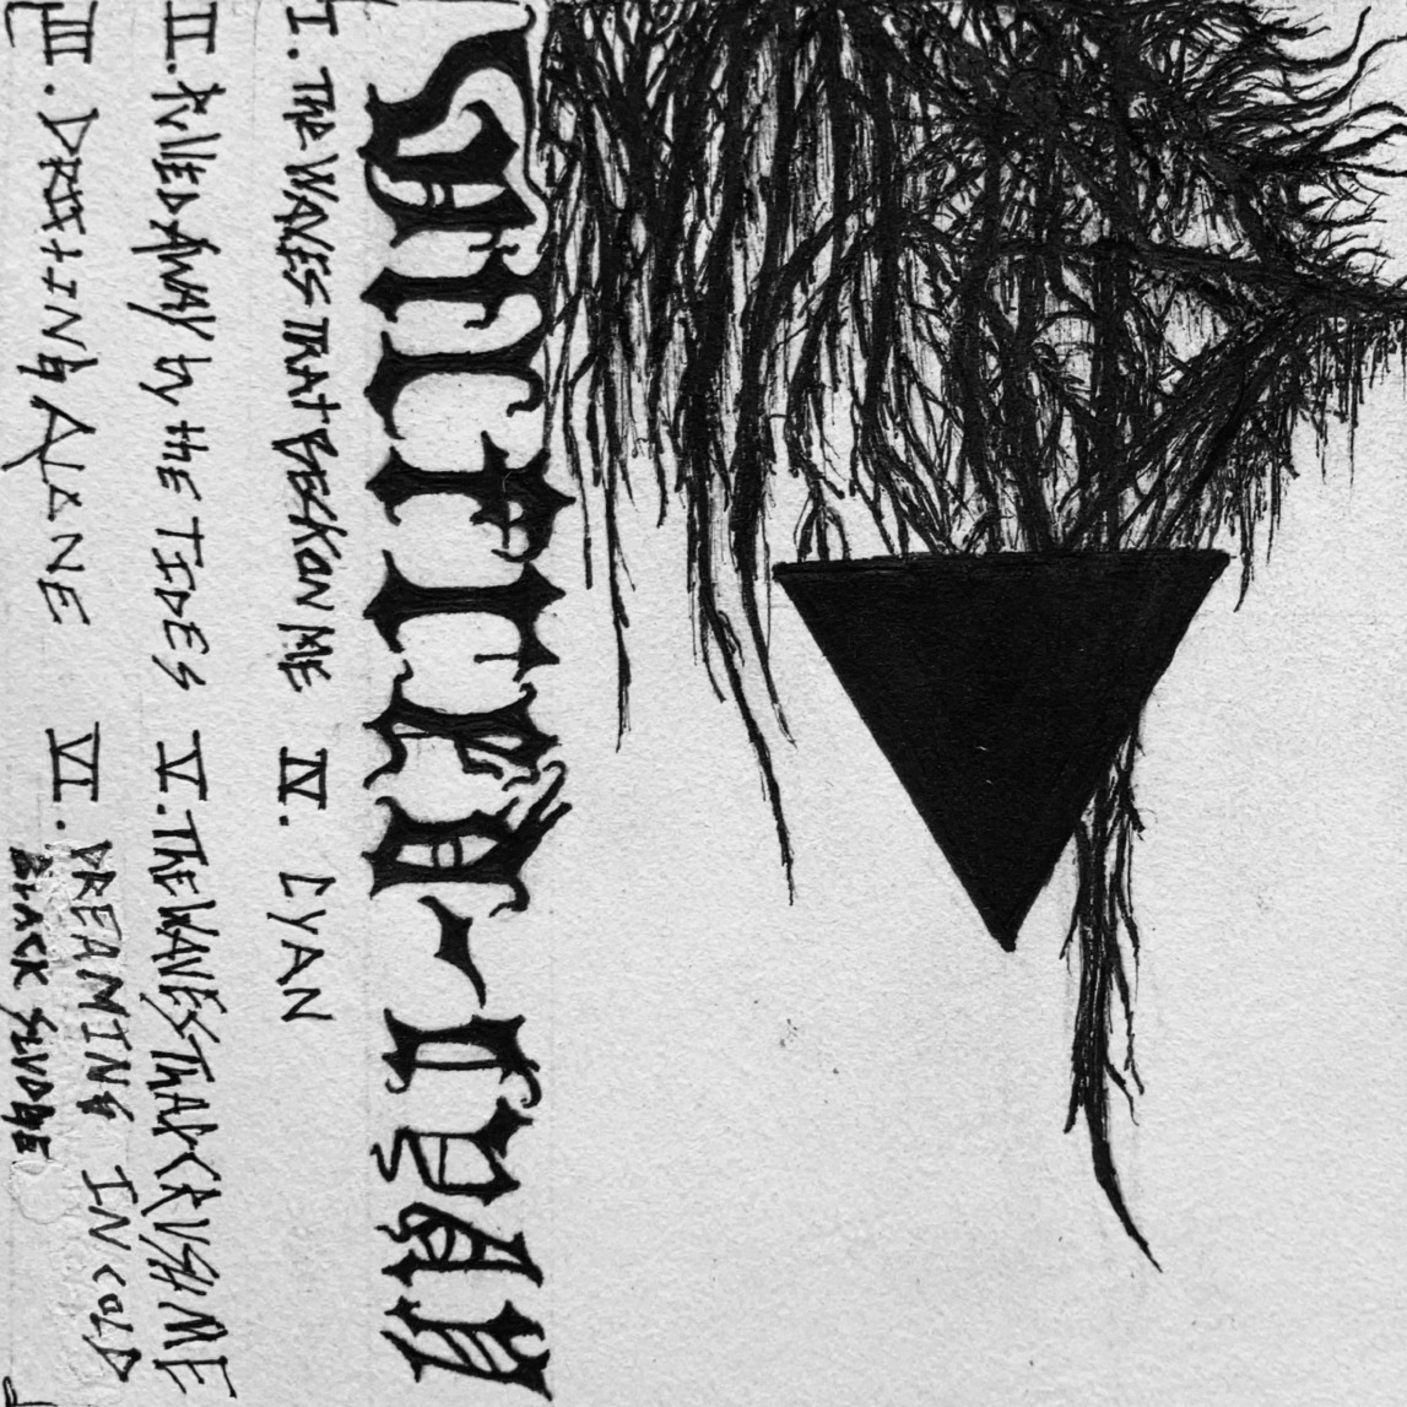 - CYAN
I. The WAVES THAT BECKON ME
II. PULLED AWAY by tHE TIDES
III. DRIFTING ALONE
IV. CYAN
V. THE WAVES THAT CRUSH ME
VI. DREAMING IN COLD
BLACK SLUDGE